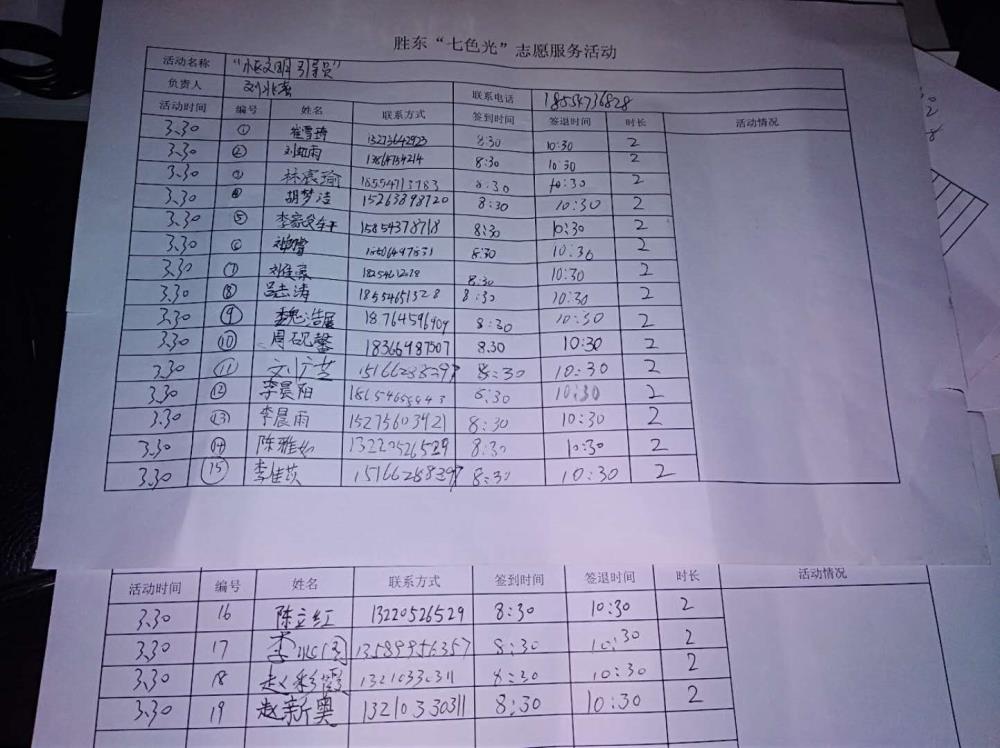 胜东“七色光”志愿服务活动
活动名称 “小区文明引导员”
负责人 联系电话 18554736828
活动时间 编号 姓名 联系方式 签到时间 签退时间 时长 活动情况
3.30 ① 崔雪琦 13273642923 8:30 10:30 2
3.30 ② 刘虹雨 13864734214 8:30 10:30 2
3.30 ③ 林宸瑜 18554713783 8:30 10:30 2
3.30 ④ 胡梦洁 15263898720 8:30 10:30 2
3.30 ⑤ 15854378718 8:30 10:30 2
3.30 ⑥ 8:30 10:30 2
3.30 ⑦ 刘佳录 8:30 10:30 2
3.30 ⑧ 吕志涛 18554651328 8:30 10:30 2
3.30 ⑨ 魏浩展 18764596909 8:30 10:30 2
3.30 ⑩ 周砚馨 18366987507 8.30 10:30 2
3.30 ⑪ 刘广芝 15166288397 8:30 10:30 2
3.30 ⑫ 李晨阳 8:30 10:30 2
3.30 ⑬ 李晨雨 15275603421 8:30 10:30 2
3.30 ⑭ 陈雅如 13220526529 8:30 10:30 2
3.30 ⑮ 李佳茨 15166288397 8:30 10:30 2
活动时间 编号 姓名 联系方式 签到时间 签退时间 时长 活动情况
3.30 16 陈立红 13220526529 8:30 10:30 2
3.30 17 13589956357 8:30 10:30 2
3.30 18 赵彩霞 13210330311 8:30 10:30 2
3.30 19 赵新奥 13210330311 8:30 10:30 2